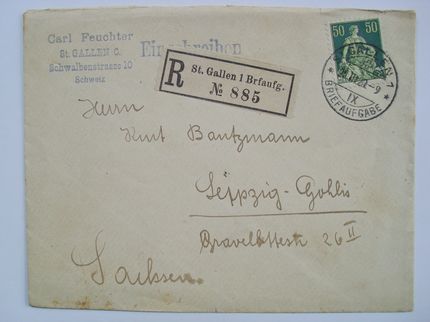 Carl Feuchter
St. GALLEN C.
Schwalbenstrasse 10
Schweiz
Einschreiben
R St. Gallen 1 Brfaufg.
№ 885
50 50
ST. GALLEN 1
BRIEFAUFGABE
IX
Herrn
Kurt Bantzmann
Leipzig-Gohlis
Gravelottestr 26 II
Sachsen.